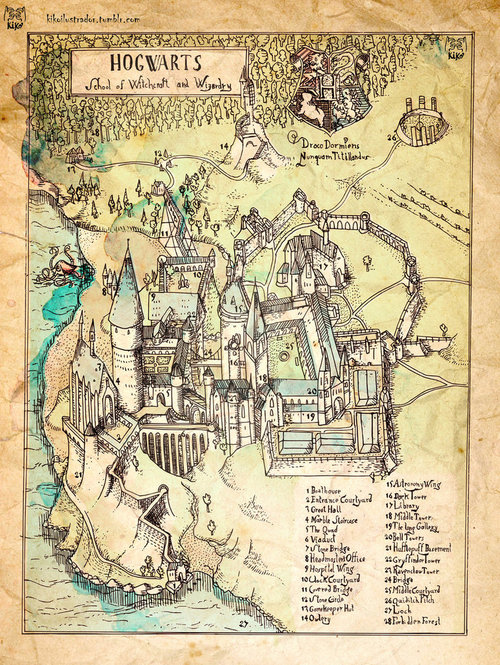 kikoilustrador.tumblr.com
KiKo
KiKo
HOGWARTS
School of Witchcraft and Wizardry
Draco Dormiens
Nunquam Titillandus
28
13
12
14
26
11
10
17
16
20
19
27
1 Boathouse
2 Entrance Courtyard
3 Great Hall
4 Marble Staircase
5 The Quad
6 Viaduct
7 Stone Bridge
8 Headmaster Office
9 Hospital Wing
10 Clock Courtyard
11 Covered Bridge
12 Stone Circle
13 Gamekeeper Hut
14 Owlery
15 Astronomy Wing
16 Dark Tower
17 Library
18 Middle Tower
19 The long Gallery
20 Bell Towers
21 Hufflepuff Basement
22 Gryffindor Tower
23 Ravenclaw Tower
24 Bridge
25 Middle Courtyard
26 Quidditch Pitch
27 Loch
28 Forbidden Forest